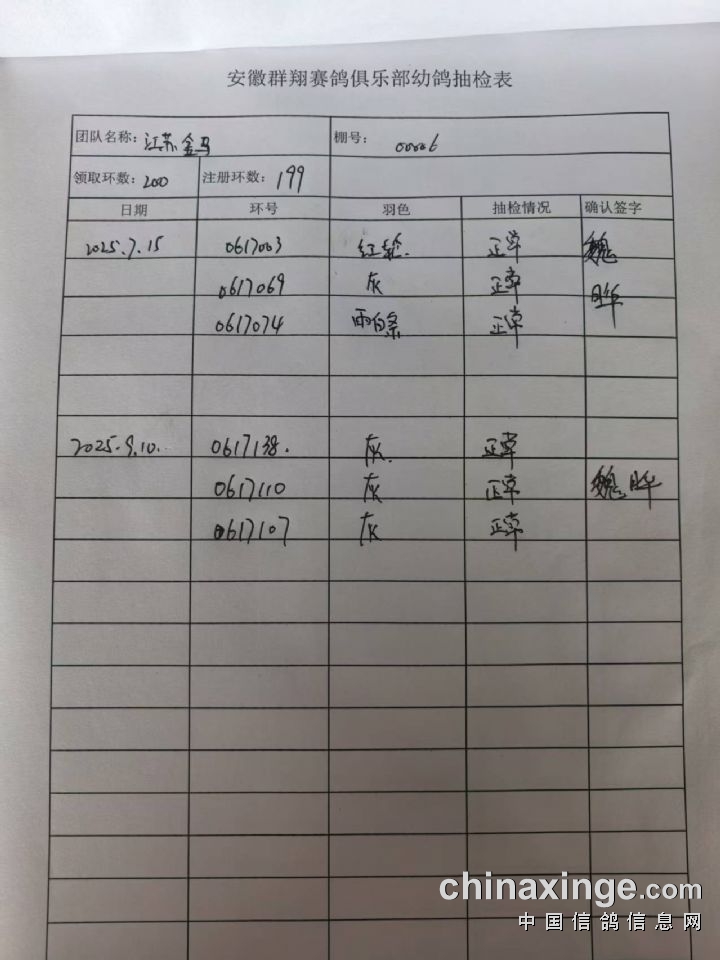 安徽群翔赛鸽俱乐部幼鸽抽检表
团队名称：江苏金马 棚号： 00006
领取环数：200 注册环数：199
日期 环号 羽色 抽检情况 确认签字
2025.7.15 0617003 红轮. 正常 魏
0617069 灰 正常 晔
0617074 雨白条 正常
2025.9.10. 0617138. 灰. 正常
0617110 灰 正常 魏晔
0617107 灰 正常
chinaxinge.com
中国信鸽信息网